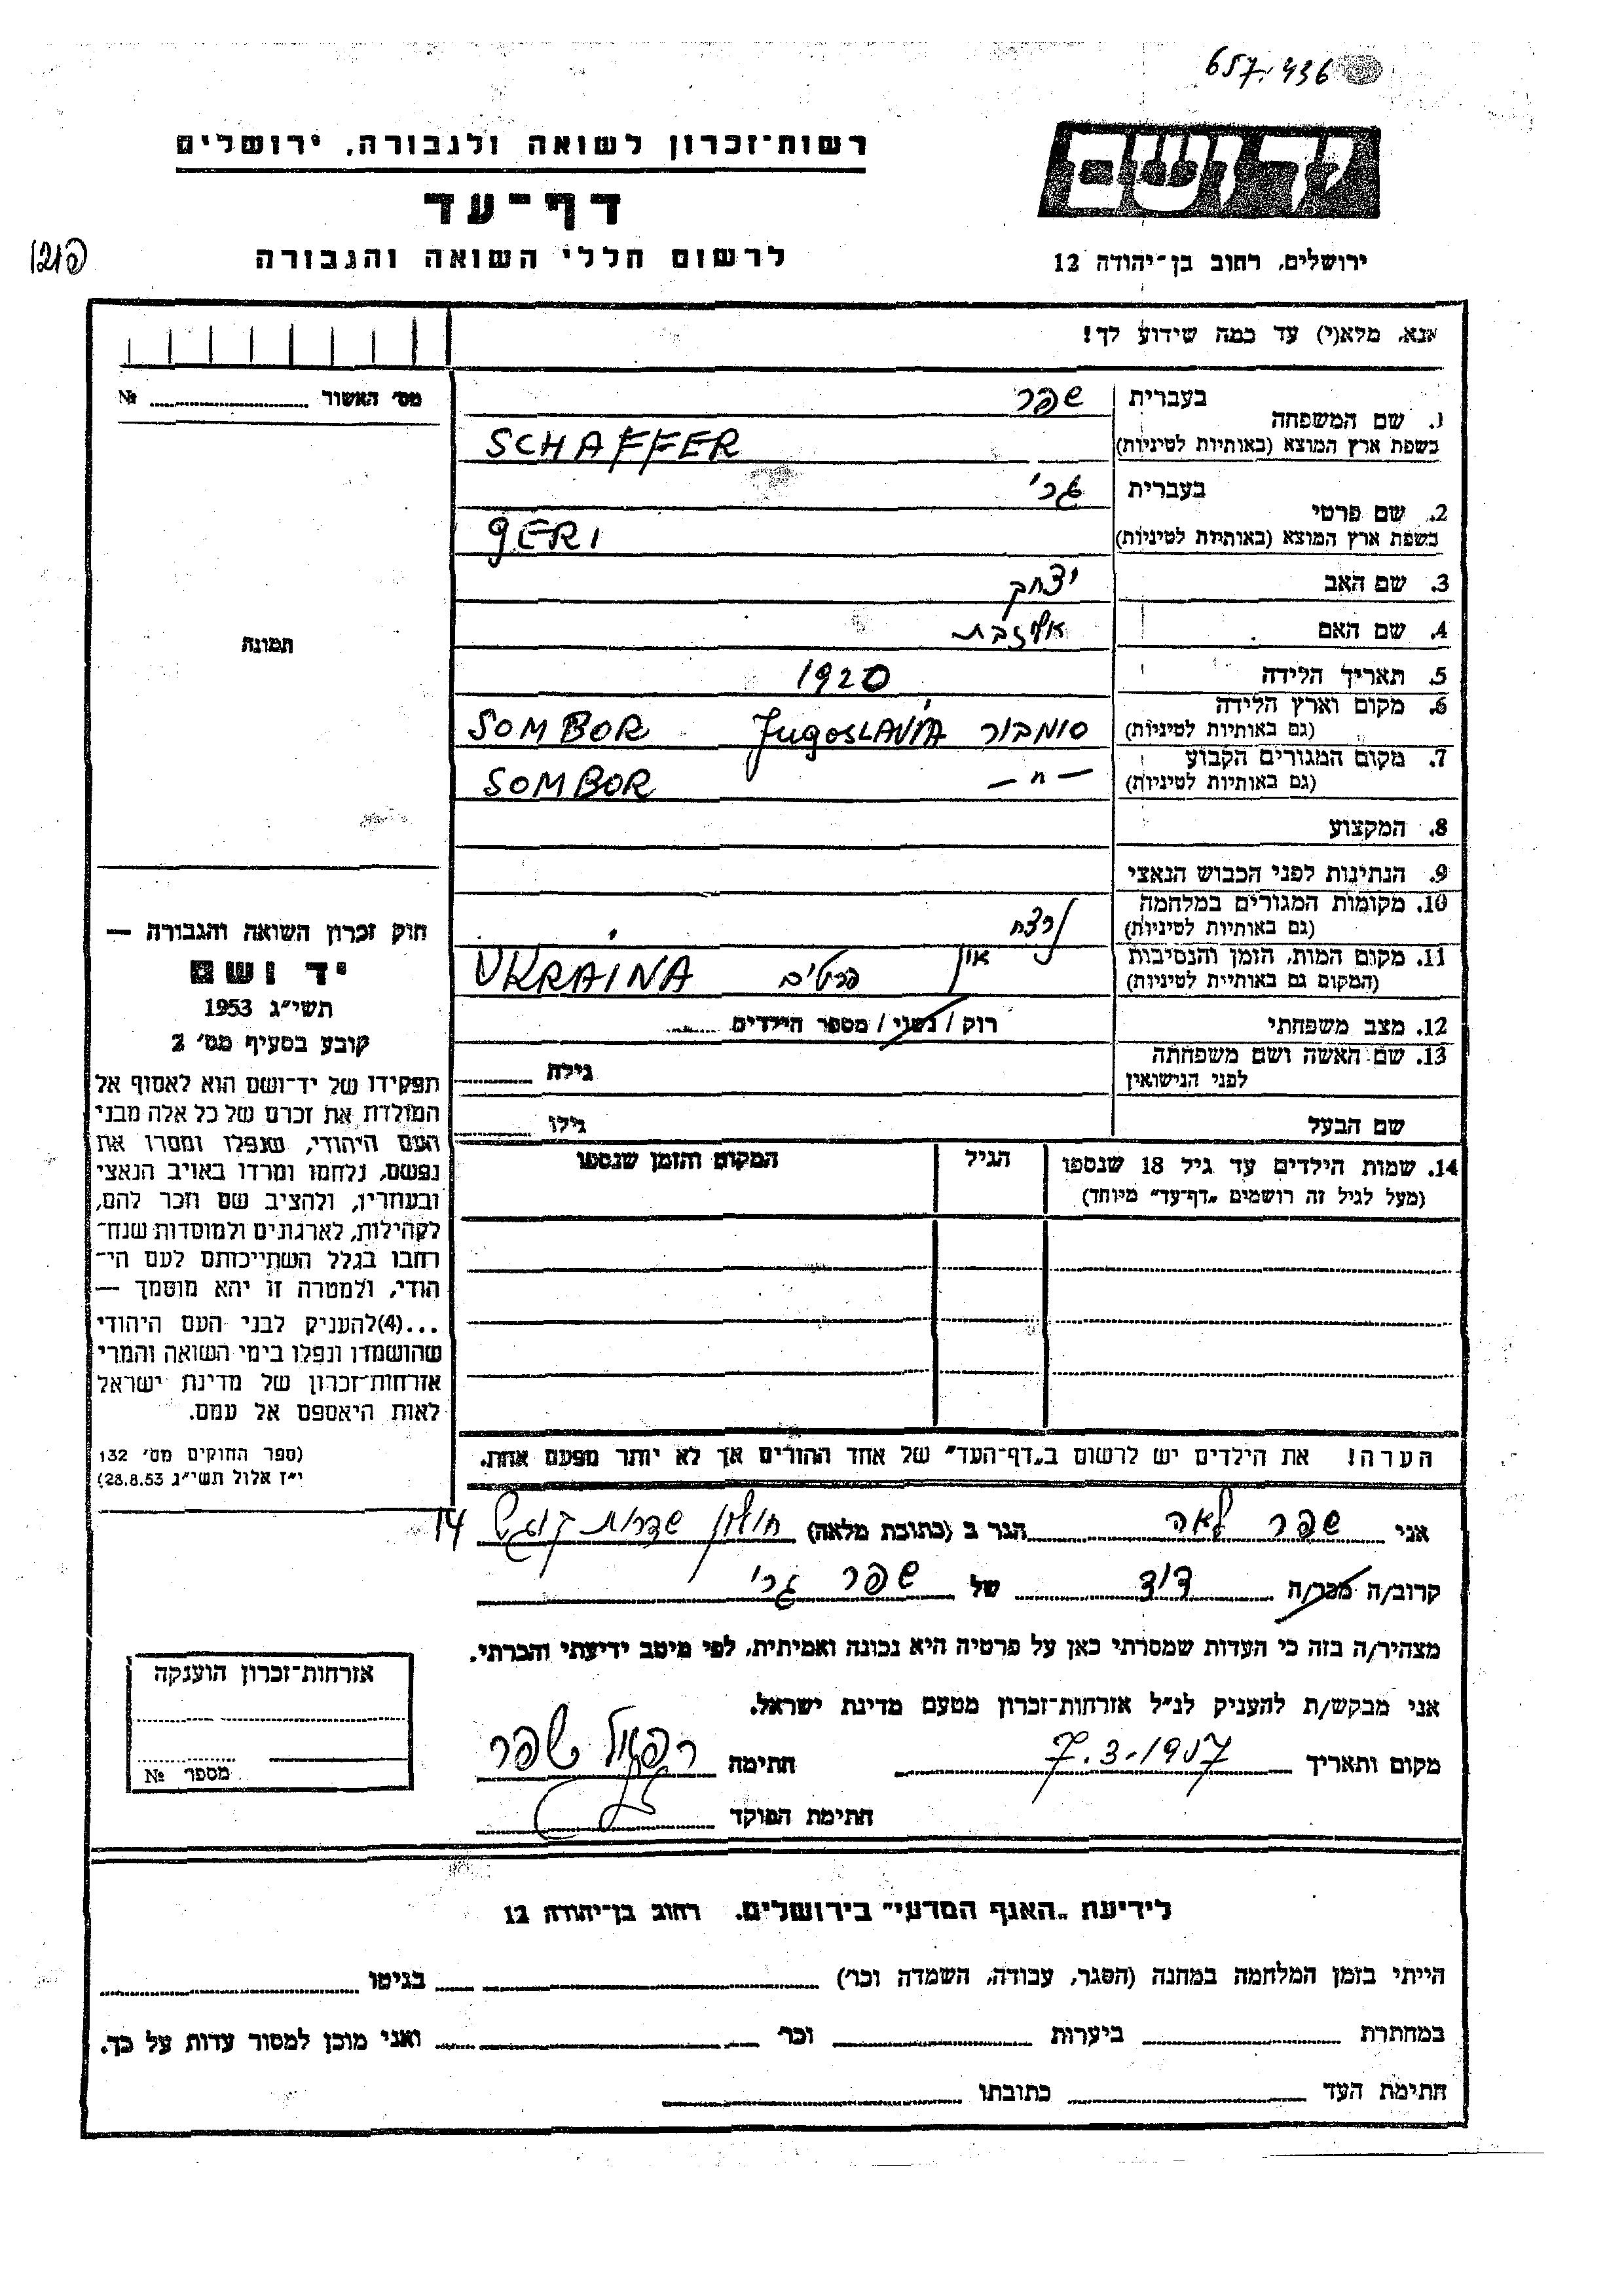 657.436
רשות־זכרון לשואה ולגבורה, ירושלים
דף־עד
לרשום חללי השואה והגבורה
יד ושם
ירושלים, רחוב בן־יהודה 12
אנא, מלא(י) עד כמה שידוע לך!
מס׳ האשור №
1. שם המשפחה בעברית שפר
בשפת ארץ המוצא (באותיות לטיניות) SCHAFFER
2. שם פרטי בעברית גרי
בשפת ארץ המוצא (באותיות לטיניות) GERI
3. שם האב יצחק
4. שם האם אליזבת
תמונה
5. תאריך הלידה 1920
6. מקום וארץ הלידה (גם באותיות לטיניות) סומבור Jugoslavia SOMBOR
7. מקום המגורים הקבוע (גם באותיות לטיניות) — " — SOMBOR
8. המקצוע
9. הנתינות לפני הכבוש הנאצי
10. מקומות המגורים במלחמה (גם באותיות לטיניות)
נרצח
11. מקום המות, הזמן והנסיבות (המקום גם באותיות לטיניות) אין פרטים UKRAINA
12. מצב משפחתי רוק / נשוי / מספר הילדים
13. שם האשה ושם משפחתה לפני הנישואין גילה
שם הבעל גילו
14. שמות הילדים עד גיל 18 שנספו
(מעל לגיל זה רושמים „דף־עד” מיוחד)
הגיל
המקום והזמן שנספו
חוק זכרון השואה והגבורה —
יד ושם
תשי״ג 1953
קובע בסעיף מס׳ 2
תפקידו של יד־ושם הוא לאסוף אל
המולדת את זכרם של כל אלה מבני
העם היהודי, שנפלו ומסרו את
נפשם, נלחמו ומרדו באויב הנאצי
ובעוזריו, ולהציב שם וזכר להם,
לקהילות, לארגונים ולמוסדות שנח־
רחבו בגלל השתייכותם לעם הי־
הודי, ולמטרה זו יהא מוסמך —
...(4)להעניק לבני העם היהודי
שהושמדו ונפלו בימי השואה והמרי
אזרחות־זכרון של מדינת ישראל
לאות היאספם אל עמם.
(ספר החוקים מס׳ 132
י״ז אלול תשי״ג 28.8.53)
הערה! את הילדים יש לרשום ב„דף־העד” של אחד ההורים אך לא יותר מפעם אחת.
אני שפר לאה הגר ב (כתובת מלאה) חולון שדרות קוגל 14
קרוב/ה מכר/ה דוד של שפר גרי
מצהיר/ה בזה כי העדות שמסרתי כאן על פרטיה היא נכונה ואמיתית, לפי מיטב ידיעתי והכרתי.
אני מבקש/ת להעניק לנ״ל אזרחות־זכרון מטעם מדינת ישראל.
מקום ותאריך 7.3.1957 חתימה רפאל שפר
חתימת הפוקד
אזרחות־זכרון הוענקה
מספר №
לידיעת „האגף המדעי” בירושלים. רחוב בן־יהודה 12
הייתי בזמן המלחמה במחנה (הסגר, עבודה, השמדה וכר׳) בגיטו
במחתרת ביערות וכר׳ ואני מוכן למסור עדות על כך.
חתימת העד כתובתו